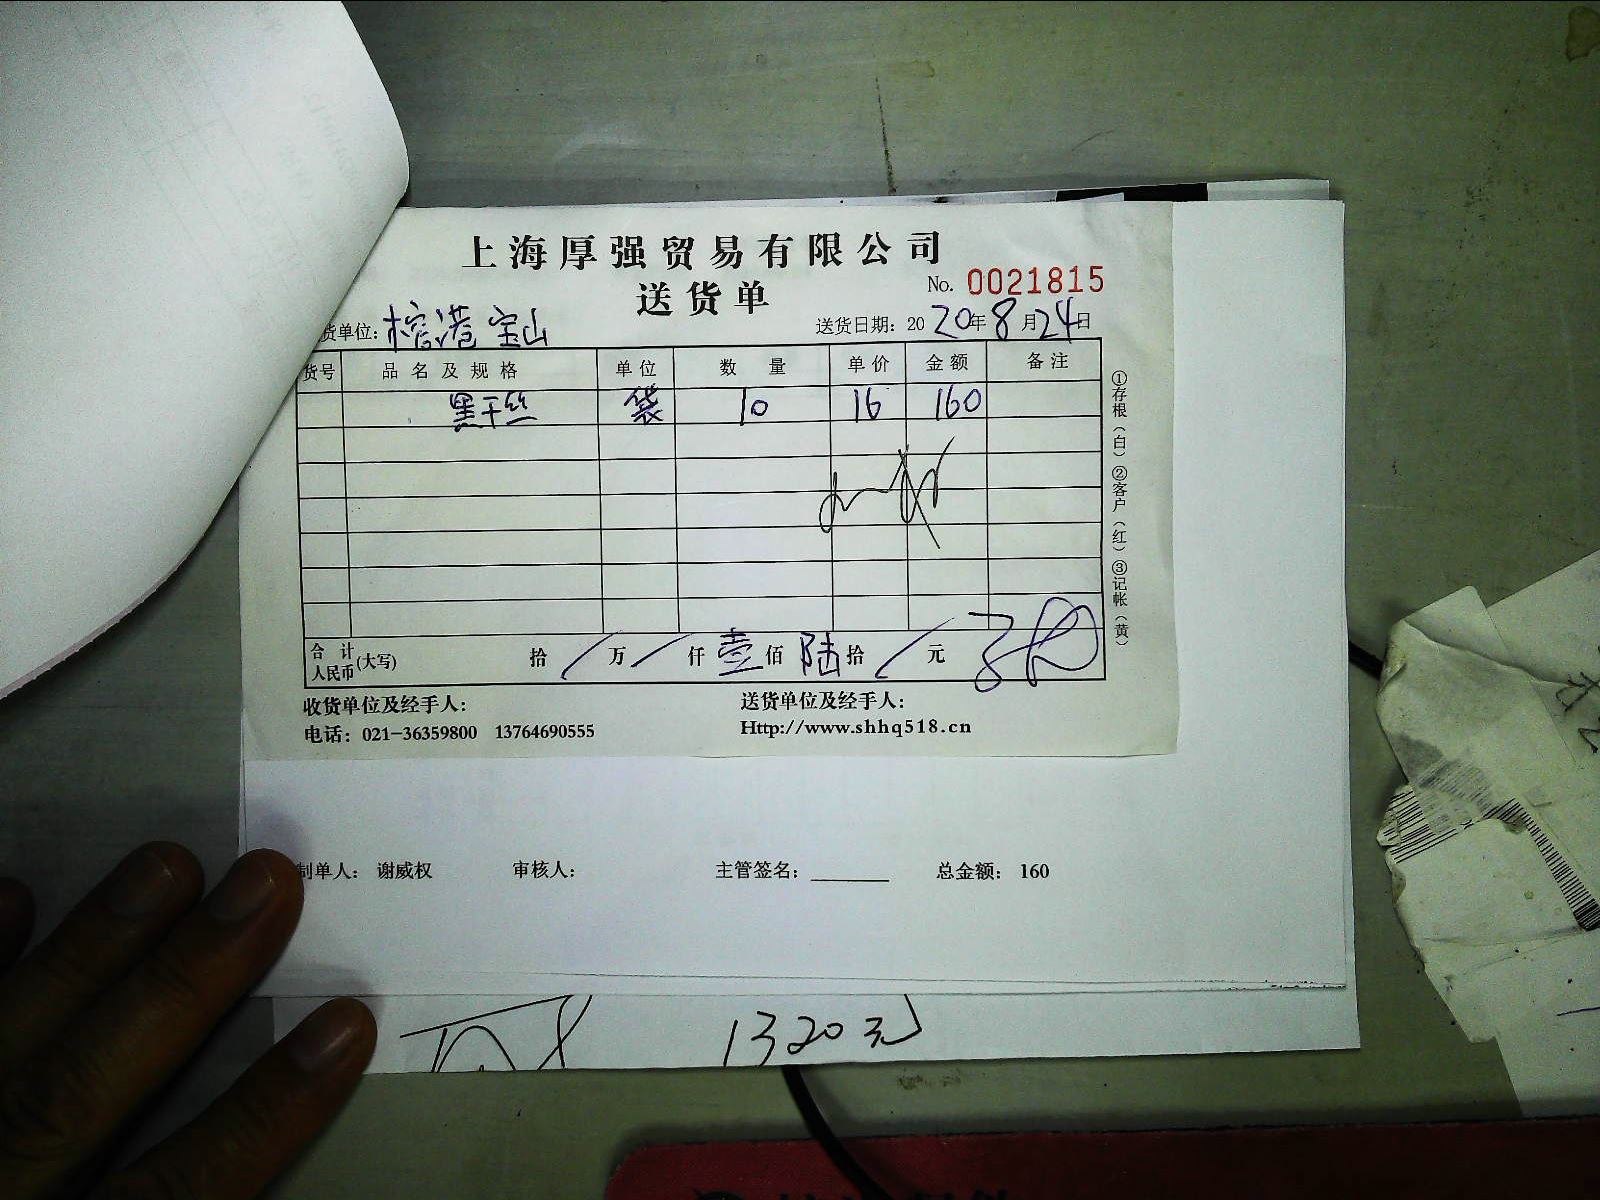 上海厚强贸易有限公司
送货单
No. 0021815
货单位：榕港宝山
送货日期：2020年8月24日
货号 品名及规格 单位 数量 单价 金额 备注
黑干丝 袋 10 16 160
①存根（白）②客户（红）③记帐（黄）
合计人民币(大写) 拾/万/仟壹佰陆拾/元
收货单位及经手人：
送货单位及经手人：
电话：021-36359800 13764690555
Http://www.shhq518.cn
制单人： 谢威权 审核人： 主管签名：________ 总金额： 160
1320元